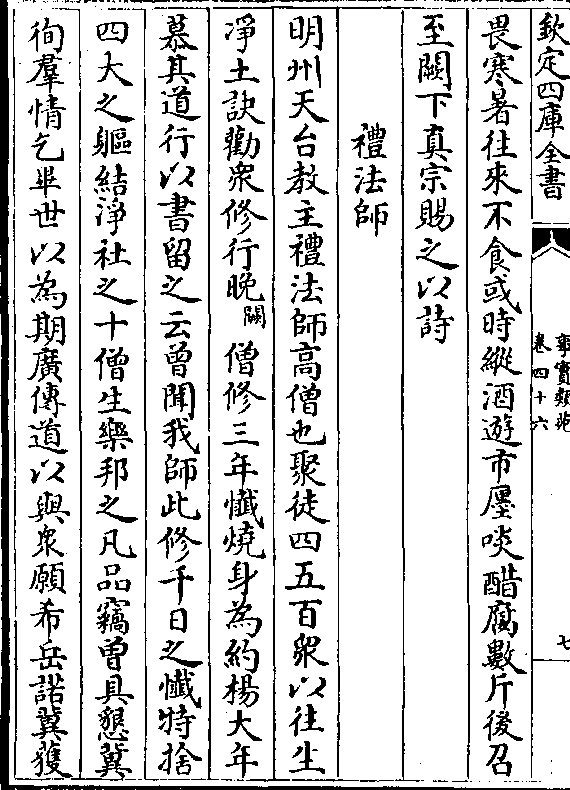 欽定四庫全書
事實類苑
卷四十六
七
畏寒暑往來不食或時縱酒遊市廛啖醋腐數斤後召
至闕下真宗賜之以詩
禮法師
明州天台教主禮法師高僧也聚徒四五百衆以往生
淨土訣勸衆修行晚闕僧修三年懺燒身為約楊大年
慕其道行以書留之云曾聞我師此修千日之懺特捨
四大之軀結淨社之十僧生樂邦之凡品竊曽具懇冀
徇羣情乞畢世以為期廣傳道以與衆願希岳諾冀獲